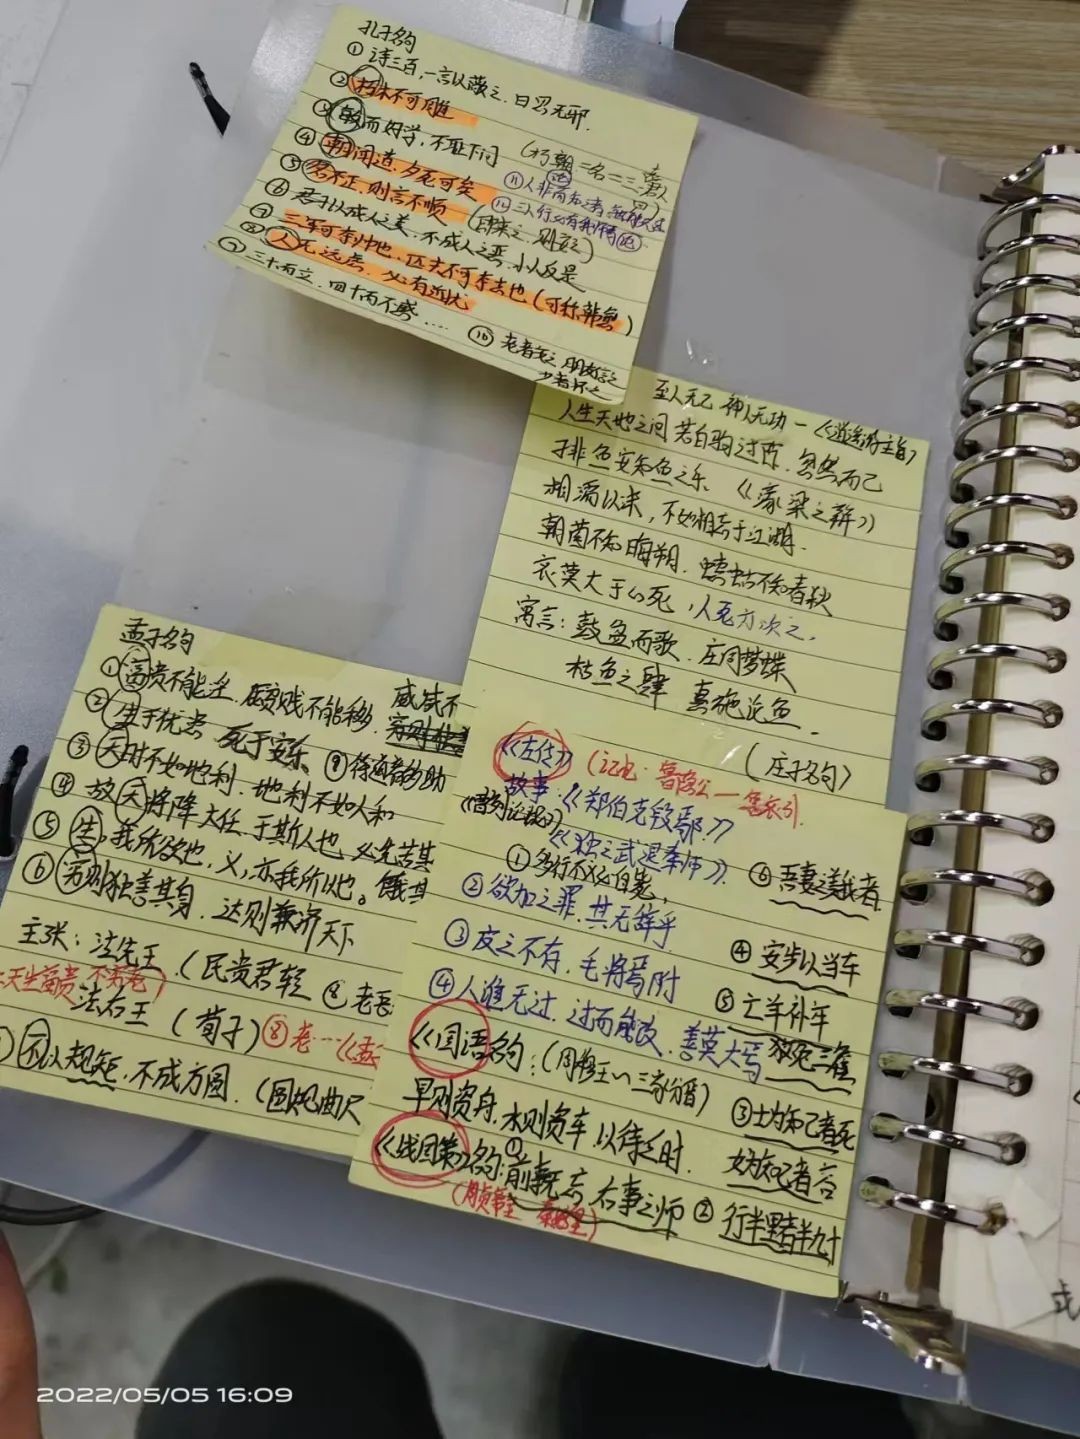 孔子名句
① 诗三百,一言以蔽之,曰思无邪.
② 朽木不可雕
③ 敏而好学,不耻下问
④ 朝闻道,夕死可矣
⑤ 名不正,则言不顺
(既来之,则安之)
⑥ 君子以成人之美,不成人之恶,小人反是
⑦ 三军可夺帅也,匹夫不可夺志也
⑧ 人无远虑,必有近忧
⑨ 三十而立,四十而不惑....
⑩ 老者安之,朋友信之
少者怀之
⑫ 三人行必有我师
至人无己 神人无功 —《逍遥游主旨》
人生天地之间 若白驹过隙,忽然而已
子非鱼安知鱼之乐 《濠梁之辩》
相濡以沫,不如相忘于江湖.
朝菌不知晦朔,蟪蛄不知春秋
哀莫大于心死,人死亦次之.
寓言:鼓盆而歌 庄周梦蝶
枯鱼之肆 惠施论鱼.
(庄子名句)
孟子名句
① 富贵不能淫,贫贱不能移 威武不
② 生于忧患 死于安乐
③ 天时不如地利,地利不如人和
④ 故天将降大任于斯人也 必先苦其
⑤ 生,我所欲也,义,亦我所欲也。饿其
⑥ 穷则独善其身,达则兼济天下
主张:法先王 (民贵君轻 ⑧ 老吾
法后王 (荀子) ⑧ 老…
不以规矩,不成方圆.
《左传》
故事:《郑伯克段鄢》
《烛之武退秦师》.
① 多行不义必自毙,
② 欲加之罪,其无辞乎
③ 皮之不存,毛将焉附
④ 人谁无过,过而能改,善莫大焉
《国语》名句:(周穆王~三家分晋)
旱则资舟,水则资车 以待乏时.
《战国策》名句:① 前事不忘 后事之师
② 行半里者半九十
③ 士为知己者死
女为知己者容
④ 安步以当车
⑤ 亡羊补牢
狡兔三窟
⑥ 吾妻之美我者
2022/05/05 16:09